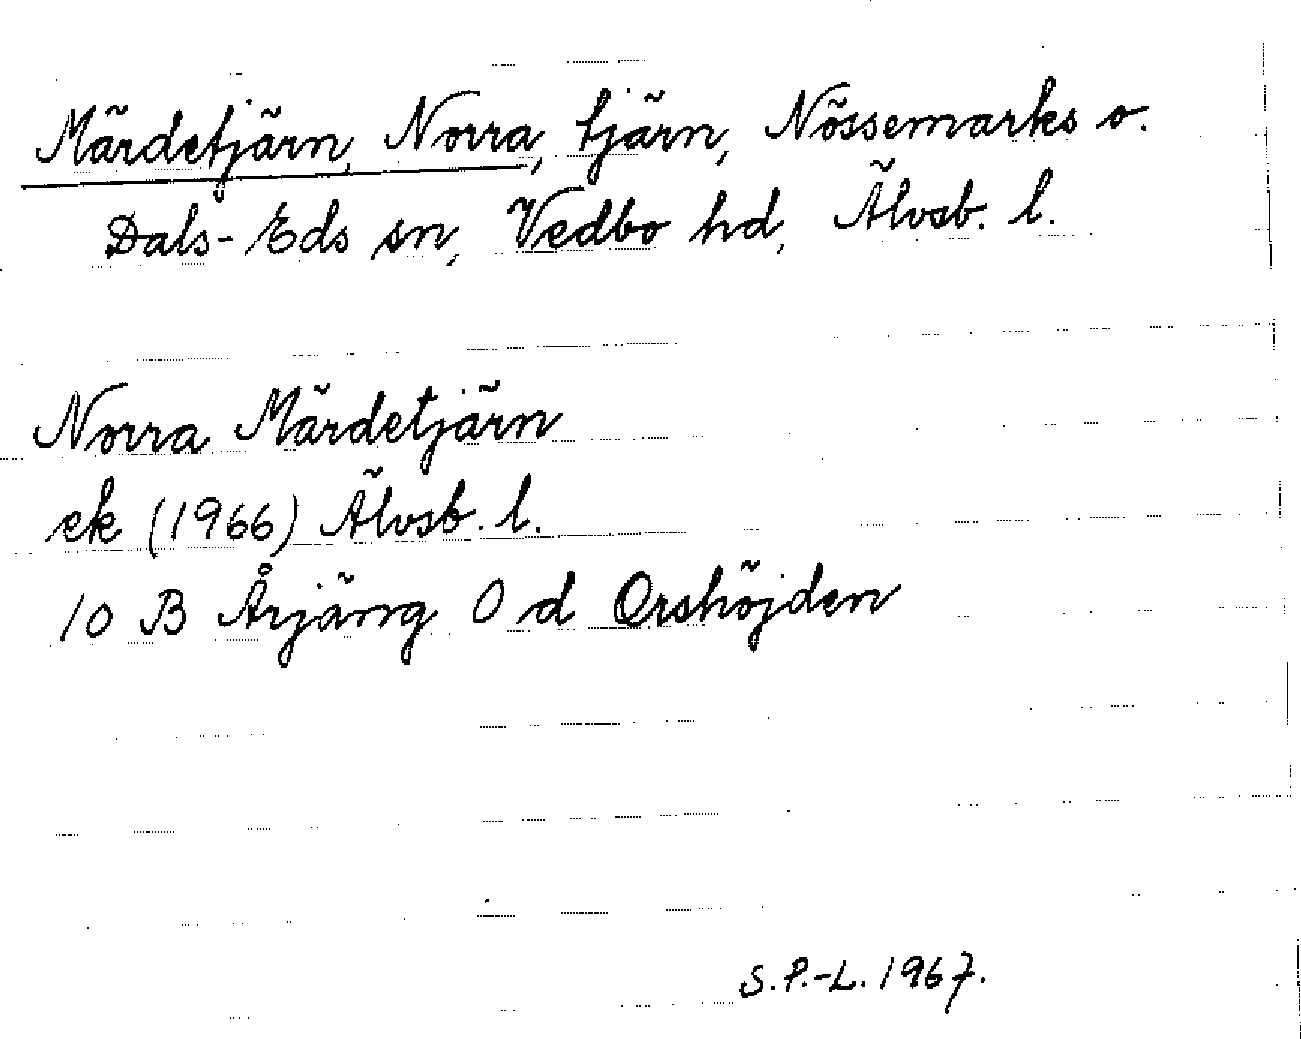 Märdetjärn, Norra, tjärn, Nössemarks o.
Dals-Eds sn, Vedbo hd, Älvsb. l.
Norra Märdetjärn
ek (1966) Älvsb. l.
10 B Årjäng 0 d Orshöjden
S.P.-L. 1967.